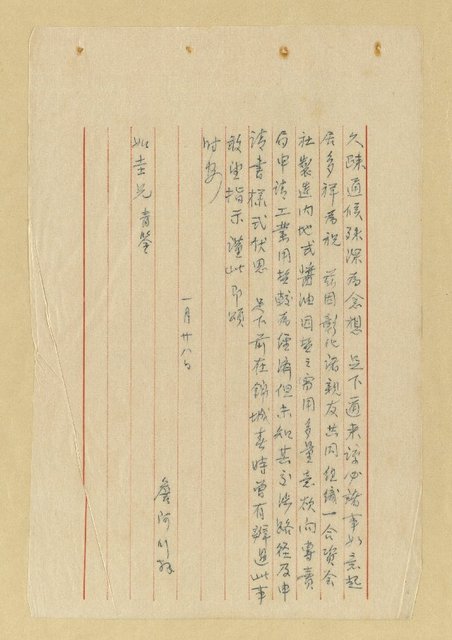 久疎通候殊深為念想 足下邇來諒必諸事如意起
居多祥為祝 茲因彰化諸親友共同組織一合資会
社製造內地式醬油因是之需用多量意欲向專賣
局申請工業用塩較為經濟但未知其交涉路径及申
請書樣式伏思 足下前在錦城春時曾有辦過此事
敢望指示謹此即頌
時安
一月廿八日
詹阿川拜
如圭兄青鑒